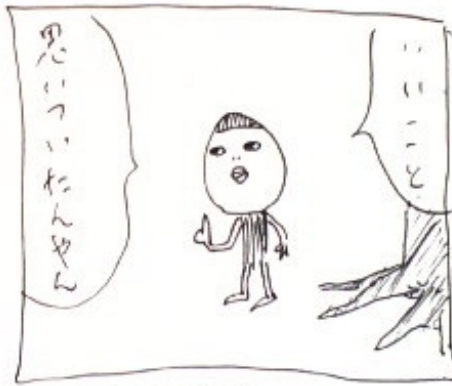 いいこと
思いついたんやん